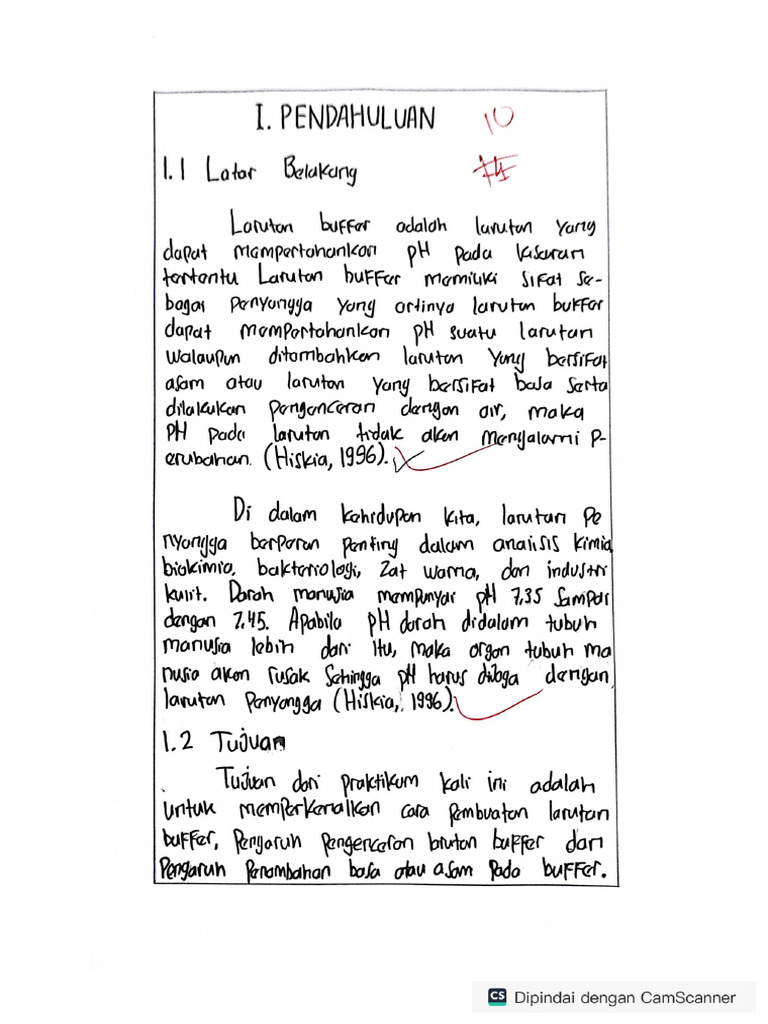 I. PENDAHULUAN
10
1.1 Latar Belakang
Larutan buffer adalah larutan yang
dapat mempertahankan pH pada kisaran
tertentu Larutan buffer memiliki sifat se-
bagai Penyangga yang artinya larutan buffer
dapat mempertahankan pH suatu larutan
walaupun ditambahkan larutan yang bersifat
asam atau larutan yang bersifat basa serta
dilakukan pengenceran dengan air, maka
pH pada larutan tidak akan mengalami p-
erubahan. (Hiskia, 1996).
Di dalam kehidupan kita, larutan Pe
nyangga berperan penting dalam analisis kimia
biokimia, bakteriologi, zat warna, dan industri
kulit. Darah manusia mempunyai pH 7,35 sampai
dengan 7.45. Apabila pH darah didalam tubuh
manusia lebih dari itu, maka organ tubuh ma
nusia akan rusak sehingga pH harus dijaga dengan
larutan Penyangga (Hiskia, 1996).
1.2 Tujuan
Tujuan dari praktikum kali ini adalah
untuk memperkenalkan cara pembuatan larutan
buffer, Pengaruh Pengenceran laruton buffer dan
Pengaruh Penambahan basa atau asam pada buffer.
CS Dipindai dengan CamScanner